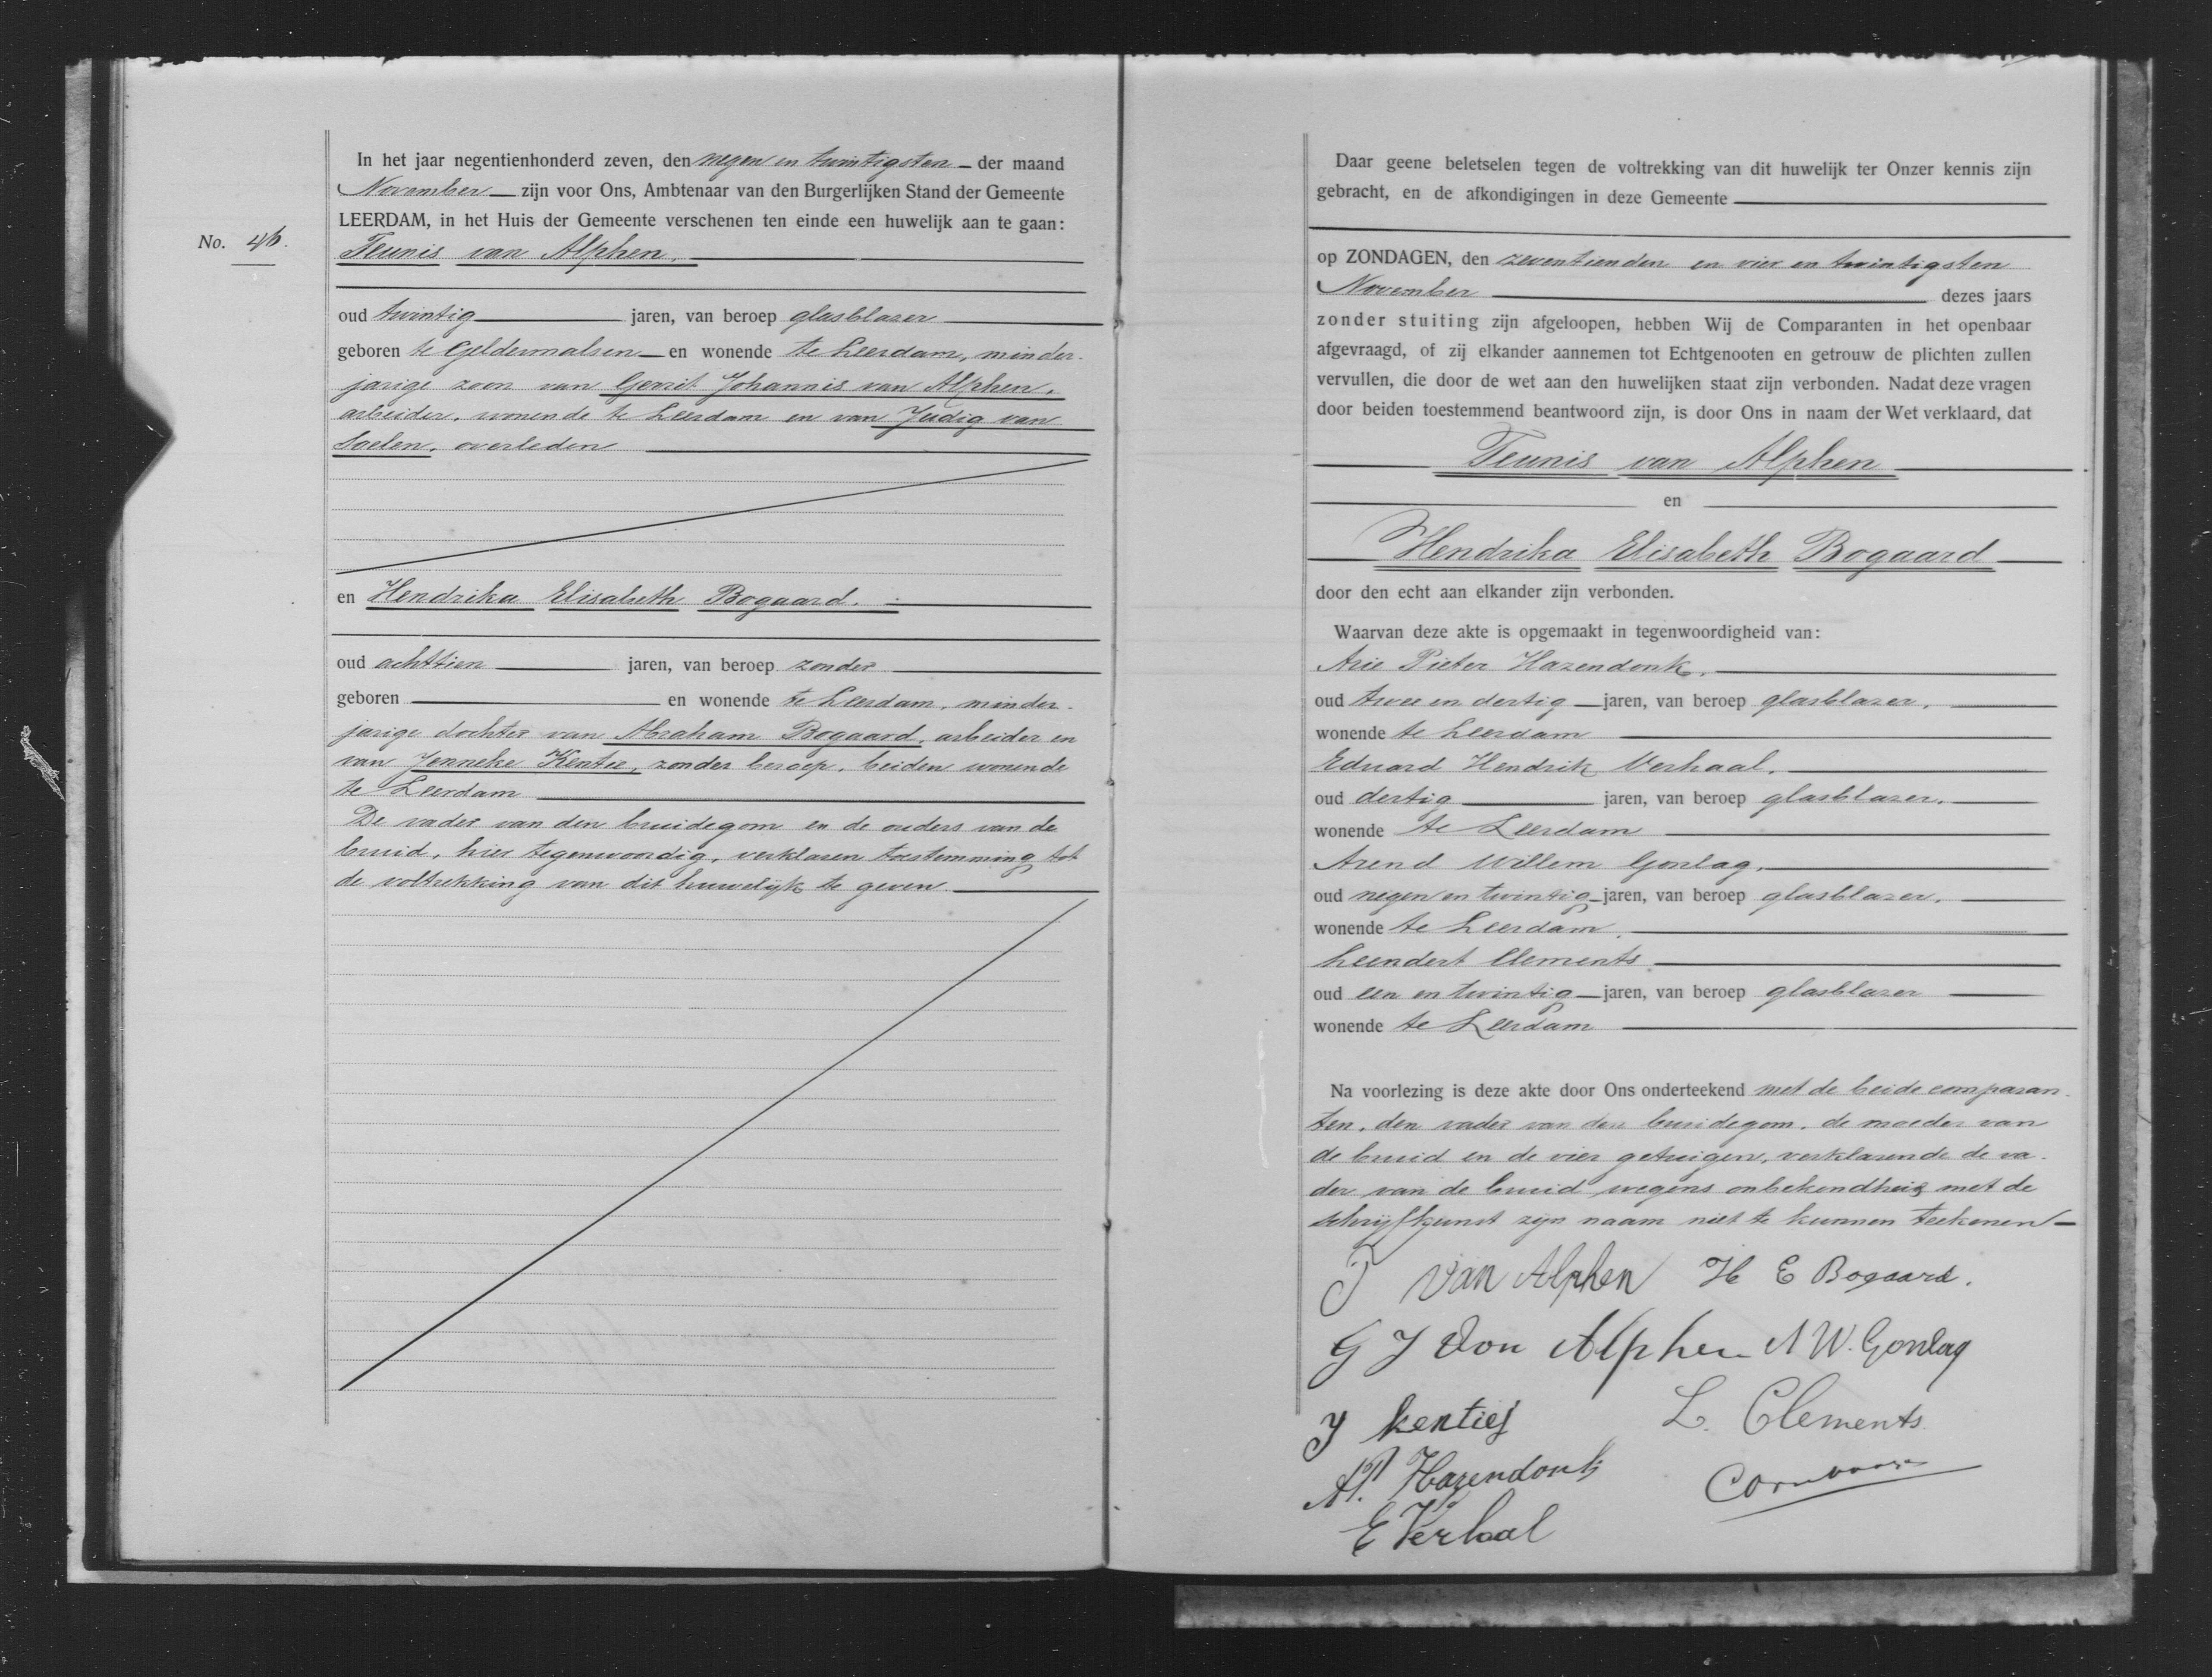 In het jaar negentienhonderd zeven, den negen en twintigsten der maand
November zijn voor Ons, Ambtenaar van den Burgerlijken Stand der Gemeente
LEERDAM, in het Huis der Gemeente verschenen ten einde een huwelijk aan te gaan:
No. 46.
Teunis van Alphen,
oud twintig jaren, van beroep glasblazer
geboren te Geldermalsen en wonende te Leerdam, minder-
jarige zoon van Gerrit Johannis van Alphen,
arbeider, wonende te Leerdam en van Judig van
Soelen, overleden
en Hendrika Elisabeth Bogaard.
oud achttien jaren, van beroep zonder
geboren en wonende te Leerdam, minder-
jarige dochter van Abraham Bogaard, arbeider en
van Jenneke Kentie, zonder beroep, beiden wonende
te Leerdam
De vader van den bruidegom en de ouders van de
bruid, hier tegenwoordig, verklaren toestemming tot
de voltrekking van dit huwelijk te geven
Daar geene beletselen tegen de voltrekking van dit huwelijk ter Onzer kennis zijn
gebracht, en de afkondigingen in deze Gemeente
op ZONDAGEN, den zeventienden en vier en twintigsten
November dezes jaars
zonder stuiting zijn afgeloopen, hebben Wij de Comparanten in het openbaar
afgevraagd, of zij elkander aannemen tot Echtgenooten en getrouw de plichten zullen
vervullen, die door de wet aan den huwelijken staat zijn verbonden. Nadat deze vragen
door beiden toestemmend beantwoord zijn, is door Ons in naam der Wet verklaard, dat
Teunis van Alphen
en
Hendrika Elisabeth Bogaard
door den echt aan elkander zijn verbonden.
Waarvan deze akte is opgemaakt in tegenwoordigheid van:
Arie Pieter Hazendonk,
oud twee en dertig jaren, van beroep glasblazer,
wonende te Leerdam
Eduard Hendrik Verhaal,
oud dertig jaren, van beroep glasblazer,
wonende te Leerdam
Arend Willem Gonlag,
oud negen en twintig jaren, van beroep glasblazer,
wonende te Leerdam,
Leendert Clements
oud een en twintig jaren, van beroep glasblazer
wonende te Leerdam
Na voorlezing is deze akte door Ons onderteekend met de beide comparan-
ten, den vader van den bruidegom, de moeder van
de bruid en de vier getuigen, verklarende de va-
der van de bruid wegens onbekendheid met de
schrijfkunst zijn naam niet te kunnen teekenen
T van Alphen H E Bogaard.
G J van Alphen A W. Gonlag
J kentiej L. Clements
AP. Hazendonk
E Verhaal